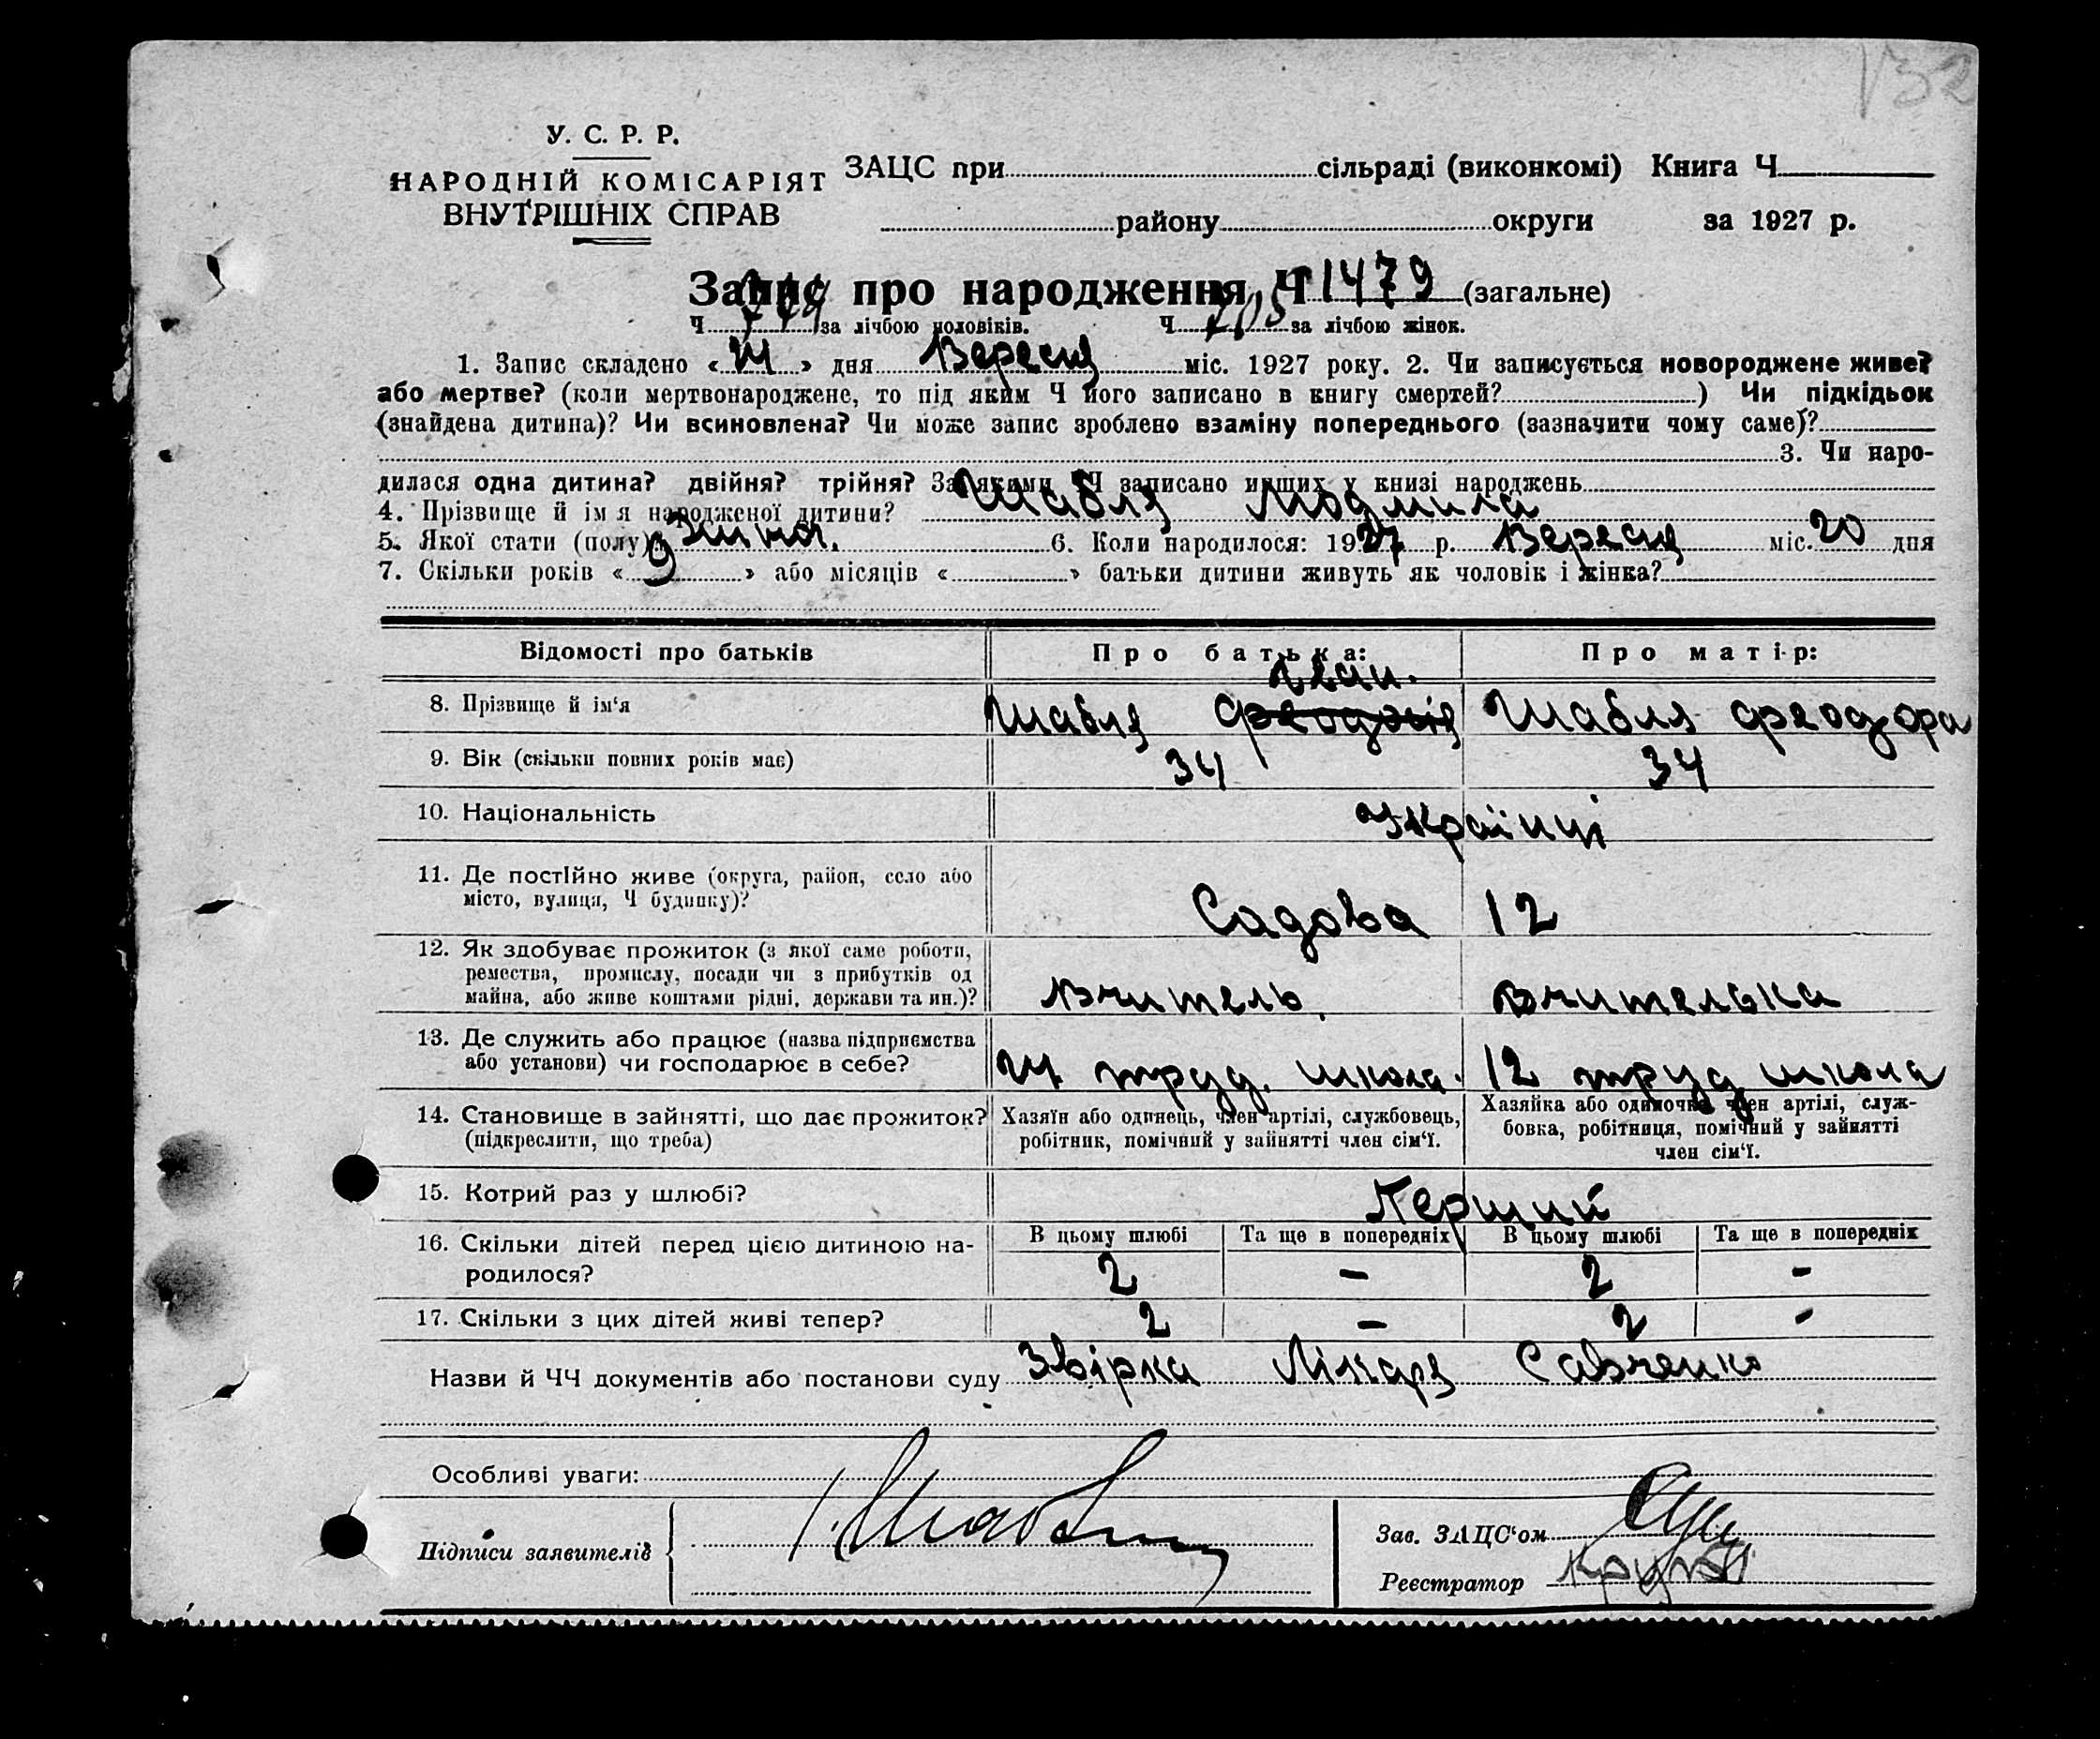 132
У. С. Р. Р.
НАРОДНІЙ КОМІСАРІЯТ
ВНУТРІШНІХ СПРАВ
ЗАЦС при сільраді (виконкомі) Книга Ч
району округи за 1927 р.
Запис про народження Ч 1479 (загальне)
Ч за лічбою чоловіків. Ч 705 за лічбою жінок.
1. Запис складено « » дня Вересня міс. 1927 року. 2. Чи записується новороджене живе?
або мертве? (коли мертвонароджене, то під яким Ч його записано в книгу смертей? ) Чи підкідьок
(знайдена дитина)? Чи всиновлена? Чи може запис зроблено взаміну попереднього (зазначити чому саме)?
3. Чи наро-
дилася одна дитина? двійня? трійня? За якими Ч записано инших у книзі народжень
4. Прізвище й ім я народженої дитини? Шабля Людмила
5. Якої стати (полу) Жіноч. 6. Коли народилося: 1927 р. Вересня міс. 20 дня
7. Скільки років « 9 » або місяців « » батьки дитини живуть як чоловік і жінка?
Відомості про батьків Про батька: Про матір:
Іван.
8. Прізвище й ім‘я Шабля Шабля Феодора
9. Вік (скільки повних років має) 34 34
10. Національність Українці
11. Де постійно живе (округа, район, село або
місто, вулиця, Ч будинку)? Садова 12
12. Як здобуває прожиток (з якої саме роботи,
ремества, промислу, посади чи з прибутків од
майна, або живе коштами рідні, держави та ин.)? вчитель вчителька
13. Де служить або працює (назва підприємства
або установи) чи господарює в себе? труд. школа. 12 труд школа
14. Становище в зайнятті, що дає прожиток?
(підкреслити, що треба)
Хазяїн або одинець, член артілі, службовець,
робітник, помічний у зайнятті член сім‘ї.
Хазяйка або одиночка член артілі, служ-
бовка, робітниця, помічний у зайнятті
член сім‘ї.
15. Котрий раз у шлюбі? Перший
16. Скільки дітей перед цією дитиною на-
родилося?
В цьому шлюбі Та ще в попередніх В цьому шлюбі Та ще в попередніх
2 - 2 -
17. Скільки з цих дітей живі тепер? 2 - 2 -
Назви й ЧЧ документів або постанови суду Звірка Лікаря Савченко
Особливі уваги:
Підписи заявителів
Зав. ЗАЦС‘ом
Реєстратор